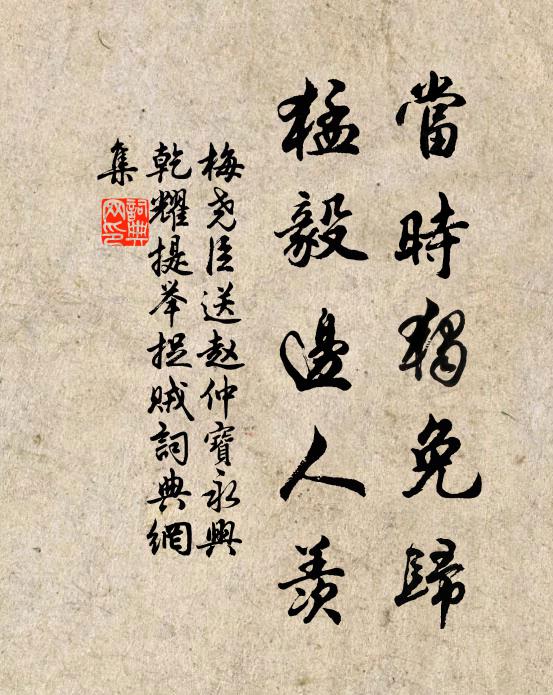 當時獨免歸
猛毅邊人羨
梅尧臣送赵仲寶永興
乾耀提举捉贼詞典網
集
詞典
网印